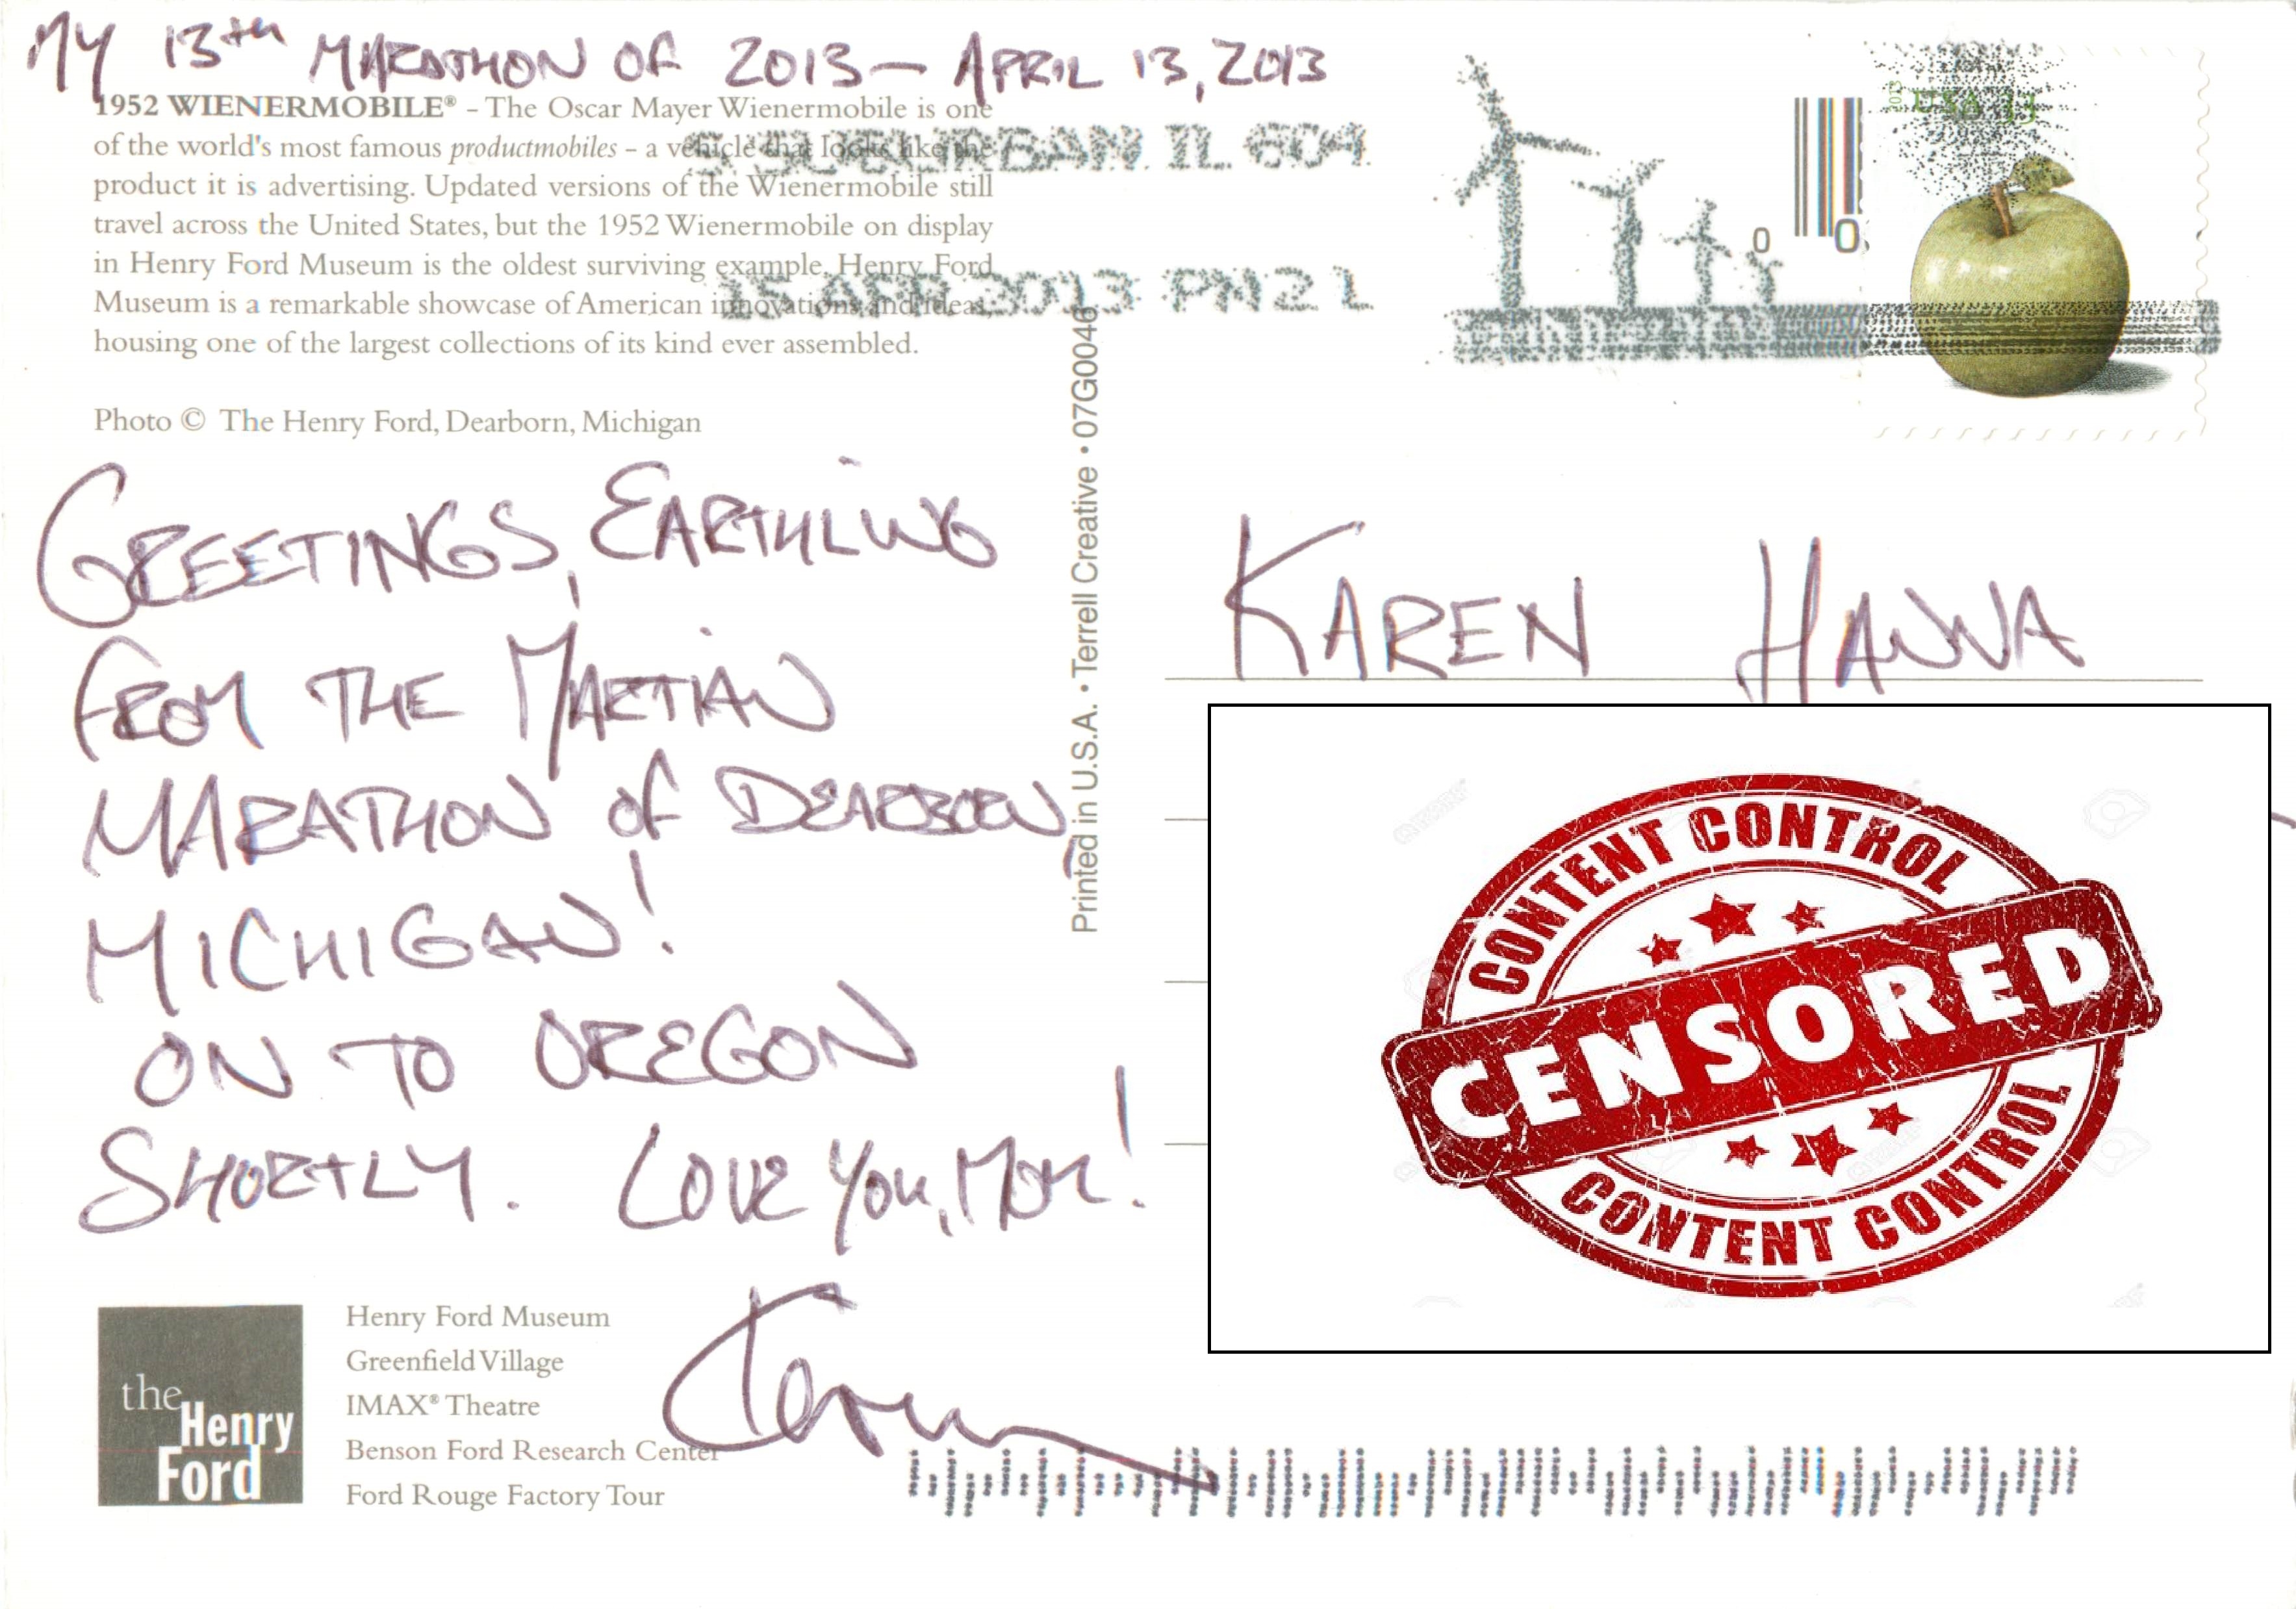 MY 13th MARATHON OF 2013 - APRIL 13, 2013
1952 WIENERMOBILE® - The Oscar Mayer Wienermobile is one
of the world's most famous productmobiles - a vehicle that looks like the
product it is advertising. Updated versions of the Wienermobile still
travel across the United States, but the 1952 Wienermobile on display
in Henry Ford Museum is the oldest surviving example. Henry Ford
Museum is a remarkable showcase of American innovations and ideas,
housing one of the largest collections of its kind ever assembled.
Photo © The Henry Ford, Dearborn, Michigan
S SUBURBAN IL 604
15 APR 2013 PM 2 L
USA
2013
GREETINGS, EARTHLING
FROM THE MARTIAN
MARATHON OF DEARBORN,
MICHIGAN!
ON TO OREGON
SHORTLY. LOVE YOU, MOM!
Printed in U.S.A. • Terrell Creative • 07G0046
0 0
KAREN HANNA
CONTENT CONTROL
CENSORED
CONTENT CONTROL
the
Henry
Ford
Henry Ford Museum
Greenfield Village
IMAX® Theatre
Benson Ford Research Center
Ford Rouge Factory Tour